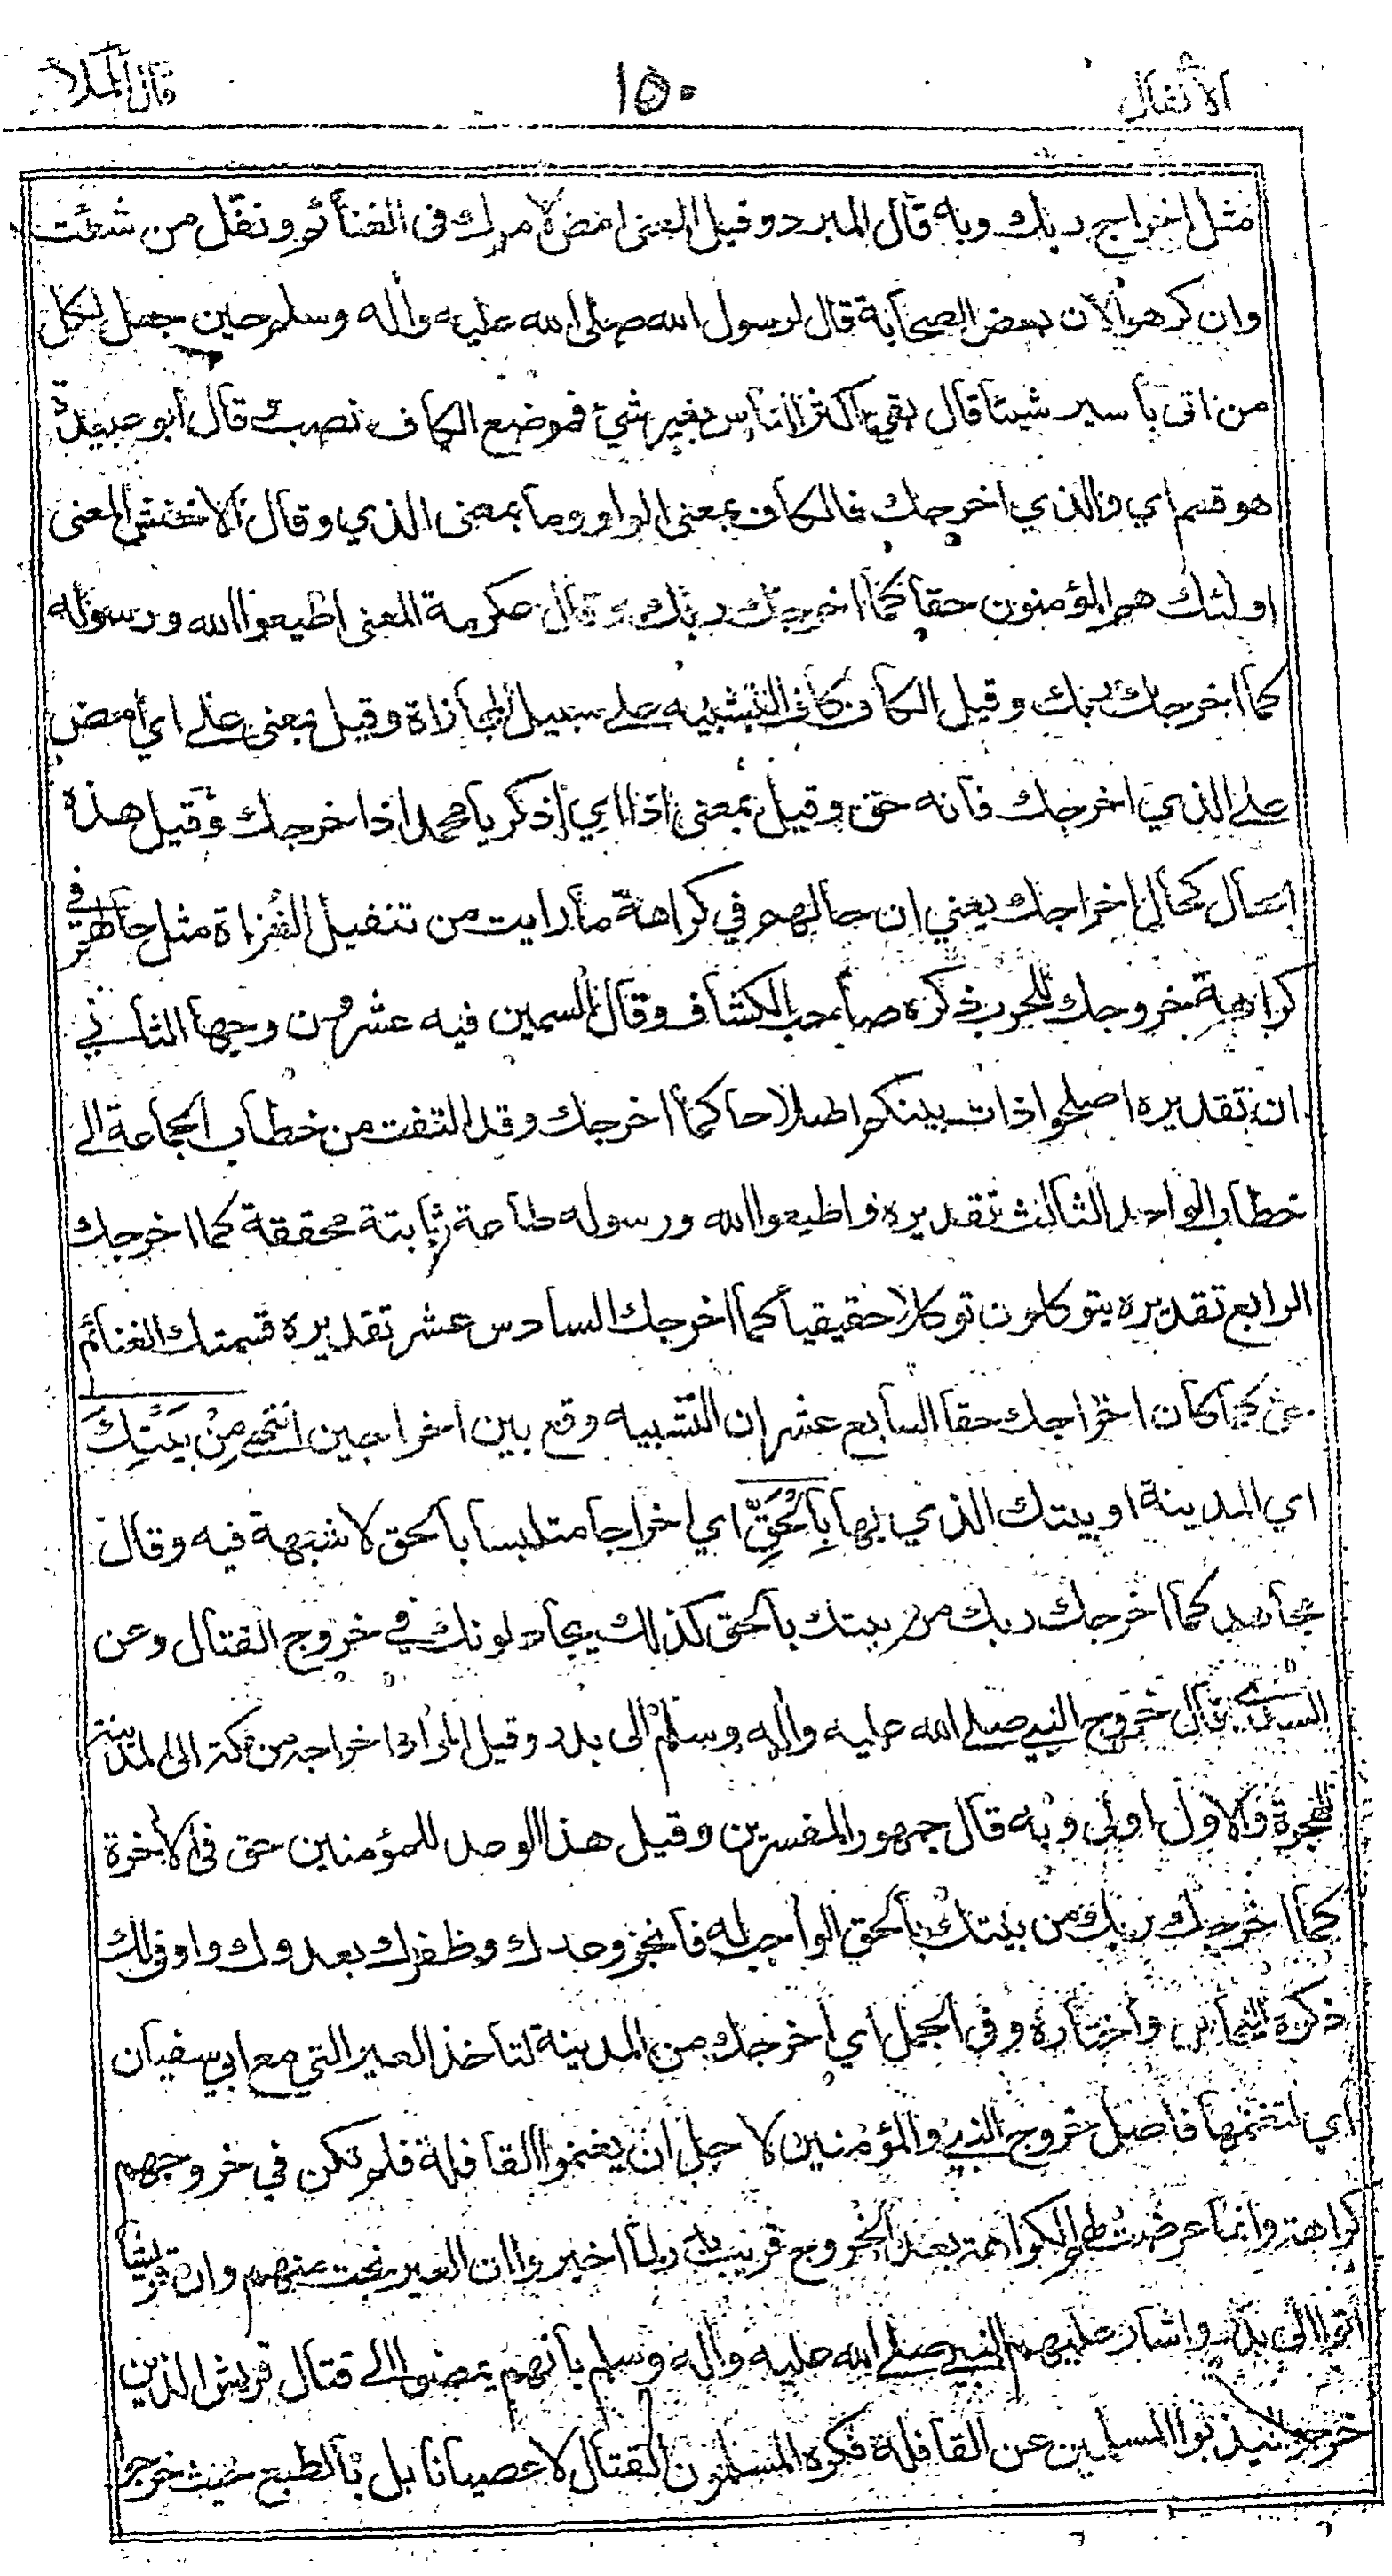 الانفال ١٥٠ قال الملأ
مثل اخراج ربك وبه قال المبرد وقيل المعنى امض لامرك فى الغنائم ونفل من شئت
وان كرهوا لان بعض الصحابة قال لرسول الله صلى الله عليه واله وسلم حين جعل لكل
من اتى بأسير شيئا قال بقي اكثر الناس بغير شيئ فموضع الكاف نصب قال ابو عبيدة
هو قسم اي والذي اخرجك فالكاف بمعنى الواو وما بمعنى الذي وقال الاخفش المعنى
اولئك هم المؤمنون حقا كما اخرجك ربك وقال عكرمة المعنى اطيعوا الله ورسوله
كما اخرجك ربك وقيل الكاف كاف التشبيه على سبيل المجازاة وقيل بمعنى على اي امض
على الذي اخرجك فانه حق وقيل بمعنى اذا اي اذكر يا محمد اذا اخرجك وقيل هذه
الحال كحال اخراجك يعني ان حالهم في كراهة ما رايت من تنفيل الغزاة مثل حالهم في
كراهة خروجك للحرب ذكره صاحب الكشاف وقال السمين فيه عشرون وجها الثاني
ان تقديره اصلحوا ذات بينكم اصلاحا كما اخرجك وقد التفت من خطاب الجماعة الى
خطاب الواحد الثالث تقديره واطيعوا الله ورسوله طاعة ثابتة محققة كما اخرجك
الرابع تقديره يتوكلون توكلا حقيقيا كما اخرجك السادس عشر تقديره قسمتك الغنائم
حق كما كان اخراجك حقا السابع عشر ان التشبيه وقع بين اخراجين انتهى مِنْ بَيْتِكَ
اي المدينة او بيتك الذي بها بِالْحَقِّ اي اخراجا متلبسا بالحق لا شبهة فيه وقال
مجاهد كما اخرجك ربك من بيتك بالحق كذلك يجادلونك في خروج القتال وعن
السدي قال خروج النبي صلى الله عليه واله وسلم الى بدر وقيل المراد اخراجه من مكة الى المدينة
للهجرة والاول اولى وبه قال جمهور المفسرين وقيل هذا الوعد للمؤمنين حق فى الاخرة
كما اخرجك ربك من بيتك بالحق الواجب له فانجز وعدك وظفرك بعدوك واوفى لك
ذكره النحاس واختاره وفى الجمل اي اخرجك من المدينة لتاخذ العير التي مع ابي سفيان
اي لتغنمها فاصل خروج النبي والمؤمنين لاجل ان يغنموا القافلة فلم تكن في خروجهم
كراهة وانما عرضت لهم الكراهة بعد الخروج قريب بدر لما اخبروا ان العير نجت منهم وان قريشا
اتوا الى بدر واشار عليهم النبي صلى الله عليه واله وسلم بانهم يمضوا الى قتال قريش الذين
خرجوا ليذبوا المسلمين عن القافلة فكره المسلمون القتال لا عصيانا بل بالطبع حيث خرجوا